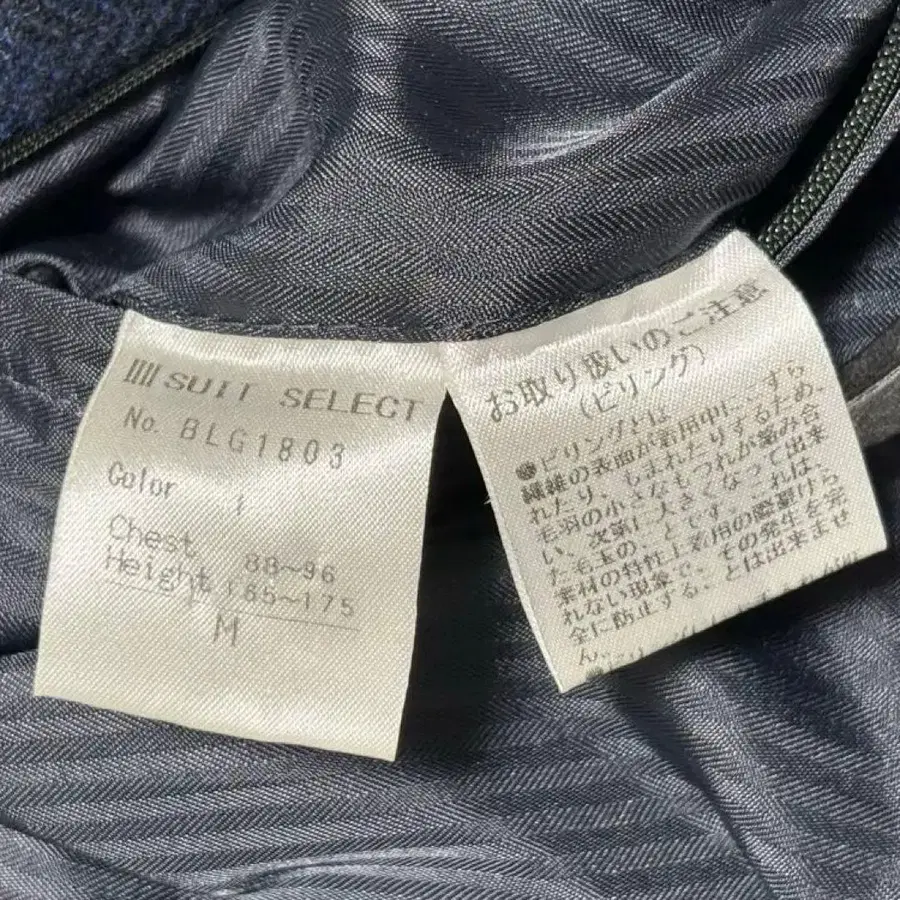 SUIT SELECT
No. BLG1803
Color 1
Chest 88~96
Height 165~175
M
お取り扱いのご注意
(ピリング)
●ピリングとは
繊維の表面が着用中に、すら
れたり、もまれたりするため、
毛羽の小さなもつれが絡み合
い、次第に大きくなって出来
た毛玉のことです。これは、
素材の特性上着用の際避けら
れない現象で、その発生を完
全に防止することは出来ませ
ん。